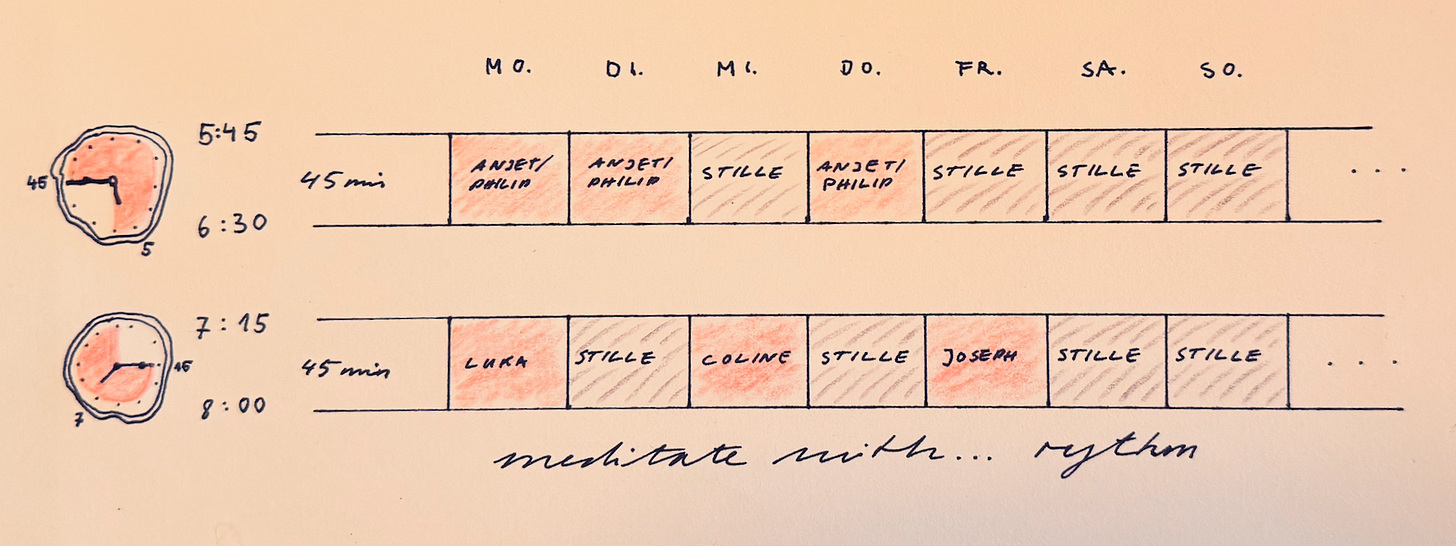 MO. DI. MI. DO. FR. SA. SO.
5:45
45
45 min
ANJET/ PHILIP
ANJET/ PHILIP
STILLE
ANJET/ PHILIP
STILLE
STILLE
STILLE
...
6:30
5
7:15
15
45 min
LUKA
STILLE
COLINE
STILLE
JOSEPH
STILLE
STILLE
...
8:00
7
meditate with... rythm